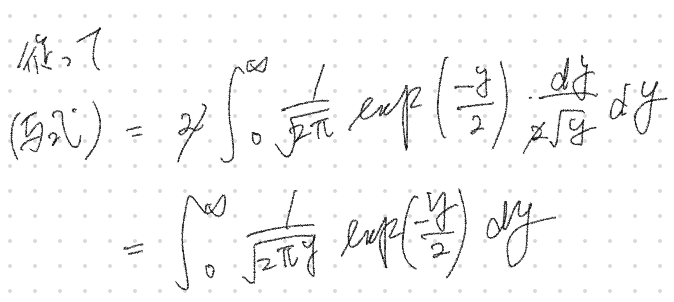 従って
(与式) = 2∫₀^∞ 1/√2π exp(-y/2) · dy/2√y dy
= ∫₀^∞ 1/√2πy exp(-y/2) dy